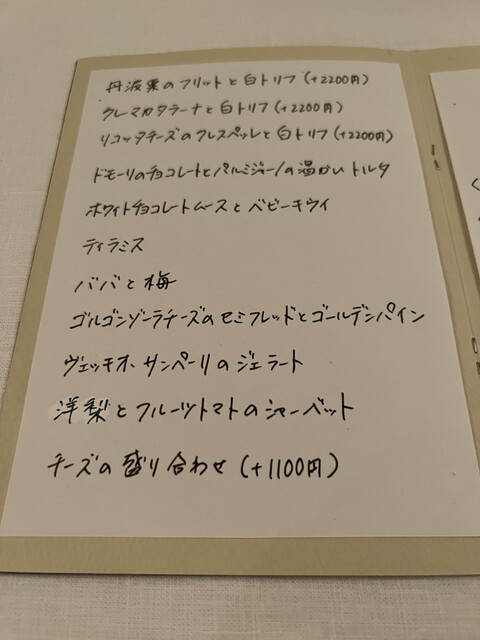 丹波栗のフリットと白トリフ(+2200円)
クレーマカタラーナと白トリフ(+2200円)
リコッタチーズのクレスペッレと白トリフ(+2200円)
ドモーリのチョコレートとパルミジャーノの温かいトルタ
ホワイトチョコレートムースとベビーキウイ
ティラミス
ババと梅
ゴルゴンゾーラチーズのセミフレッドとゴールデンパイン
ヴェッキオ・サンペーリのジェラート
洋梨とフルーツトマトのシャーベット
チーズの盛り合わせ(+1100円)